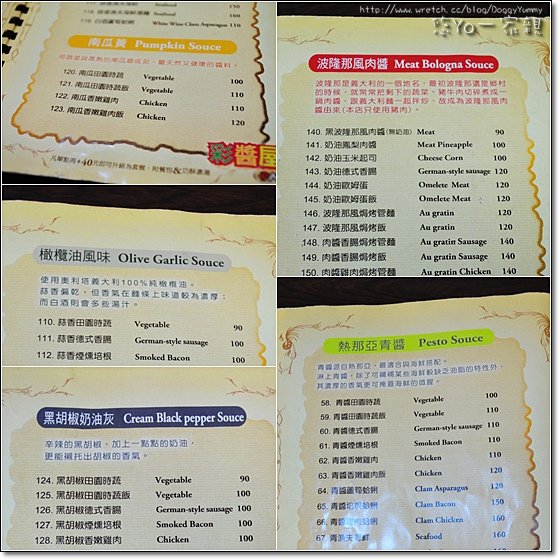 http://www.wretch.cc/blog/DoggyYummy
Seafood 160
118. 白酒蘆筍蛤蜊 White Wine Clam Asparagus 110
南瓜黃 Pumpkin Souce
120. 南瓜田園時蔬 Vegetable 100
121. 南瓜田園時蔬飯 Vegetable 110
122. 南瓜香嫩雞肉 Chicken 110
123. 南瓜香嫩雞肉飯 Chicken 120
彩醬屋
凡單點再+40元即可升級為套餐，附餐包&巧酥濃湯
橄欖油風味 Olive Garlic Souce
使用奧利塔義大利100%純橄欖油。
蒜香偏乾，但香氣在麵條上味道較為濃厚；
而白酒則會多些湯汁。
110. 蒜香田園時蔬 Vegetable 90
111. 蒜香德式香腸 German-style sausage 100
112. 蒜香煙燻培根 Smoked Bacon 100
黑胡椒奶油灰 Cream Black pepper Souce
辛辣的黑胡椒，加上一點點的奶油，
更能襯托出胡椒的香氣。
124. 黑胡椒田園時蔬 Vegetable 90
125. 黑胡椒田園時蔬飯 Vegetable 100
126. 黑胡椒德式香腸 German-style sausage 100
127. 黑胡椒煙燻培根 Smoked Bacon 100
128. 黑胡椒香嫩雞肉 Chicken 100
波隆那風肉醬 Meat Bologna Souce
波隆那是義大利的一個地名，最初波隆那還是鄉村
的時候，就常常把剩下的蔬菜、豬牛肉切碎煮成一
鍋肉醬，跟義大利麵一起拌炒，故成為波隆那風肉
醬由來(本店只使用豬肉)。
140. 黑波隆那風肉醬(無奶油) Meat 90
141. 奶油鳳梨肉醬 Meat Pineapple 100
142. 奶油玉米起司 Cheese Corn 100
143. 奶油德式香腸 German-style sausage 120
144. 奶油歐姆蛋 Omelete Meat 120
145. 奶油歐姆蛋飯 Omelete Meat 120
146. 波隆那風焗烤管麵 Au gratin 120
147. 波隆那風焗烤飯 Au gratin 120
148. 肉醬香腸焗烤管麵 Au gratin Sausage 140
149. 肉醬香腸焗烤飯 Au gratin Sausage 140
150. 肉醬雞肉焗烤管麵 Au gratin Chicken 140
熱那亞青醬 Pesto Souce
青醬源自熱那亞，最適合與海鮮搭配。
淋上青醬，除了可補某些海鮮較缺乏油脂的特性外，
其濃厚的香氣更可掩蓋海鮮的微腥。
58. 青醬田園時蔬 Vegetable 100
59. 青醬田園時蔬飯 Vegetable 110
60. 青醬德式香腸 German-style sausage 110
61. 青醬煙燻培根 Smoked Bacon 110
62. 青醬香嫩雞肉 Chicken 110
63. 青醬香嫩雞肉飯 Chicken 120
64. 青醬蘆筍蛤蜊 Clam Asparagus 120
65. 青醬培根蛤蜊 Clam Bacon 150
66. 青醬雞肉蛤蜊 Clam Chicken 160
67. 青漁夫海鮮 Seafood 160